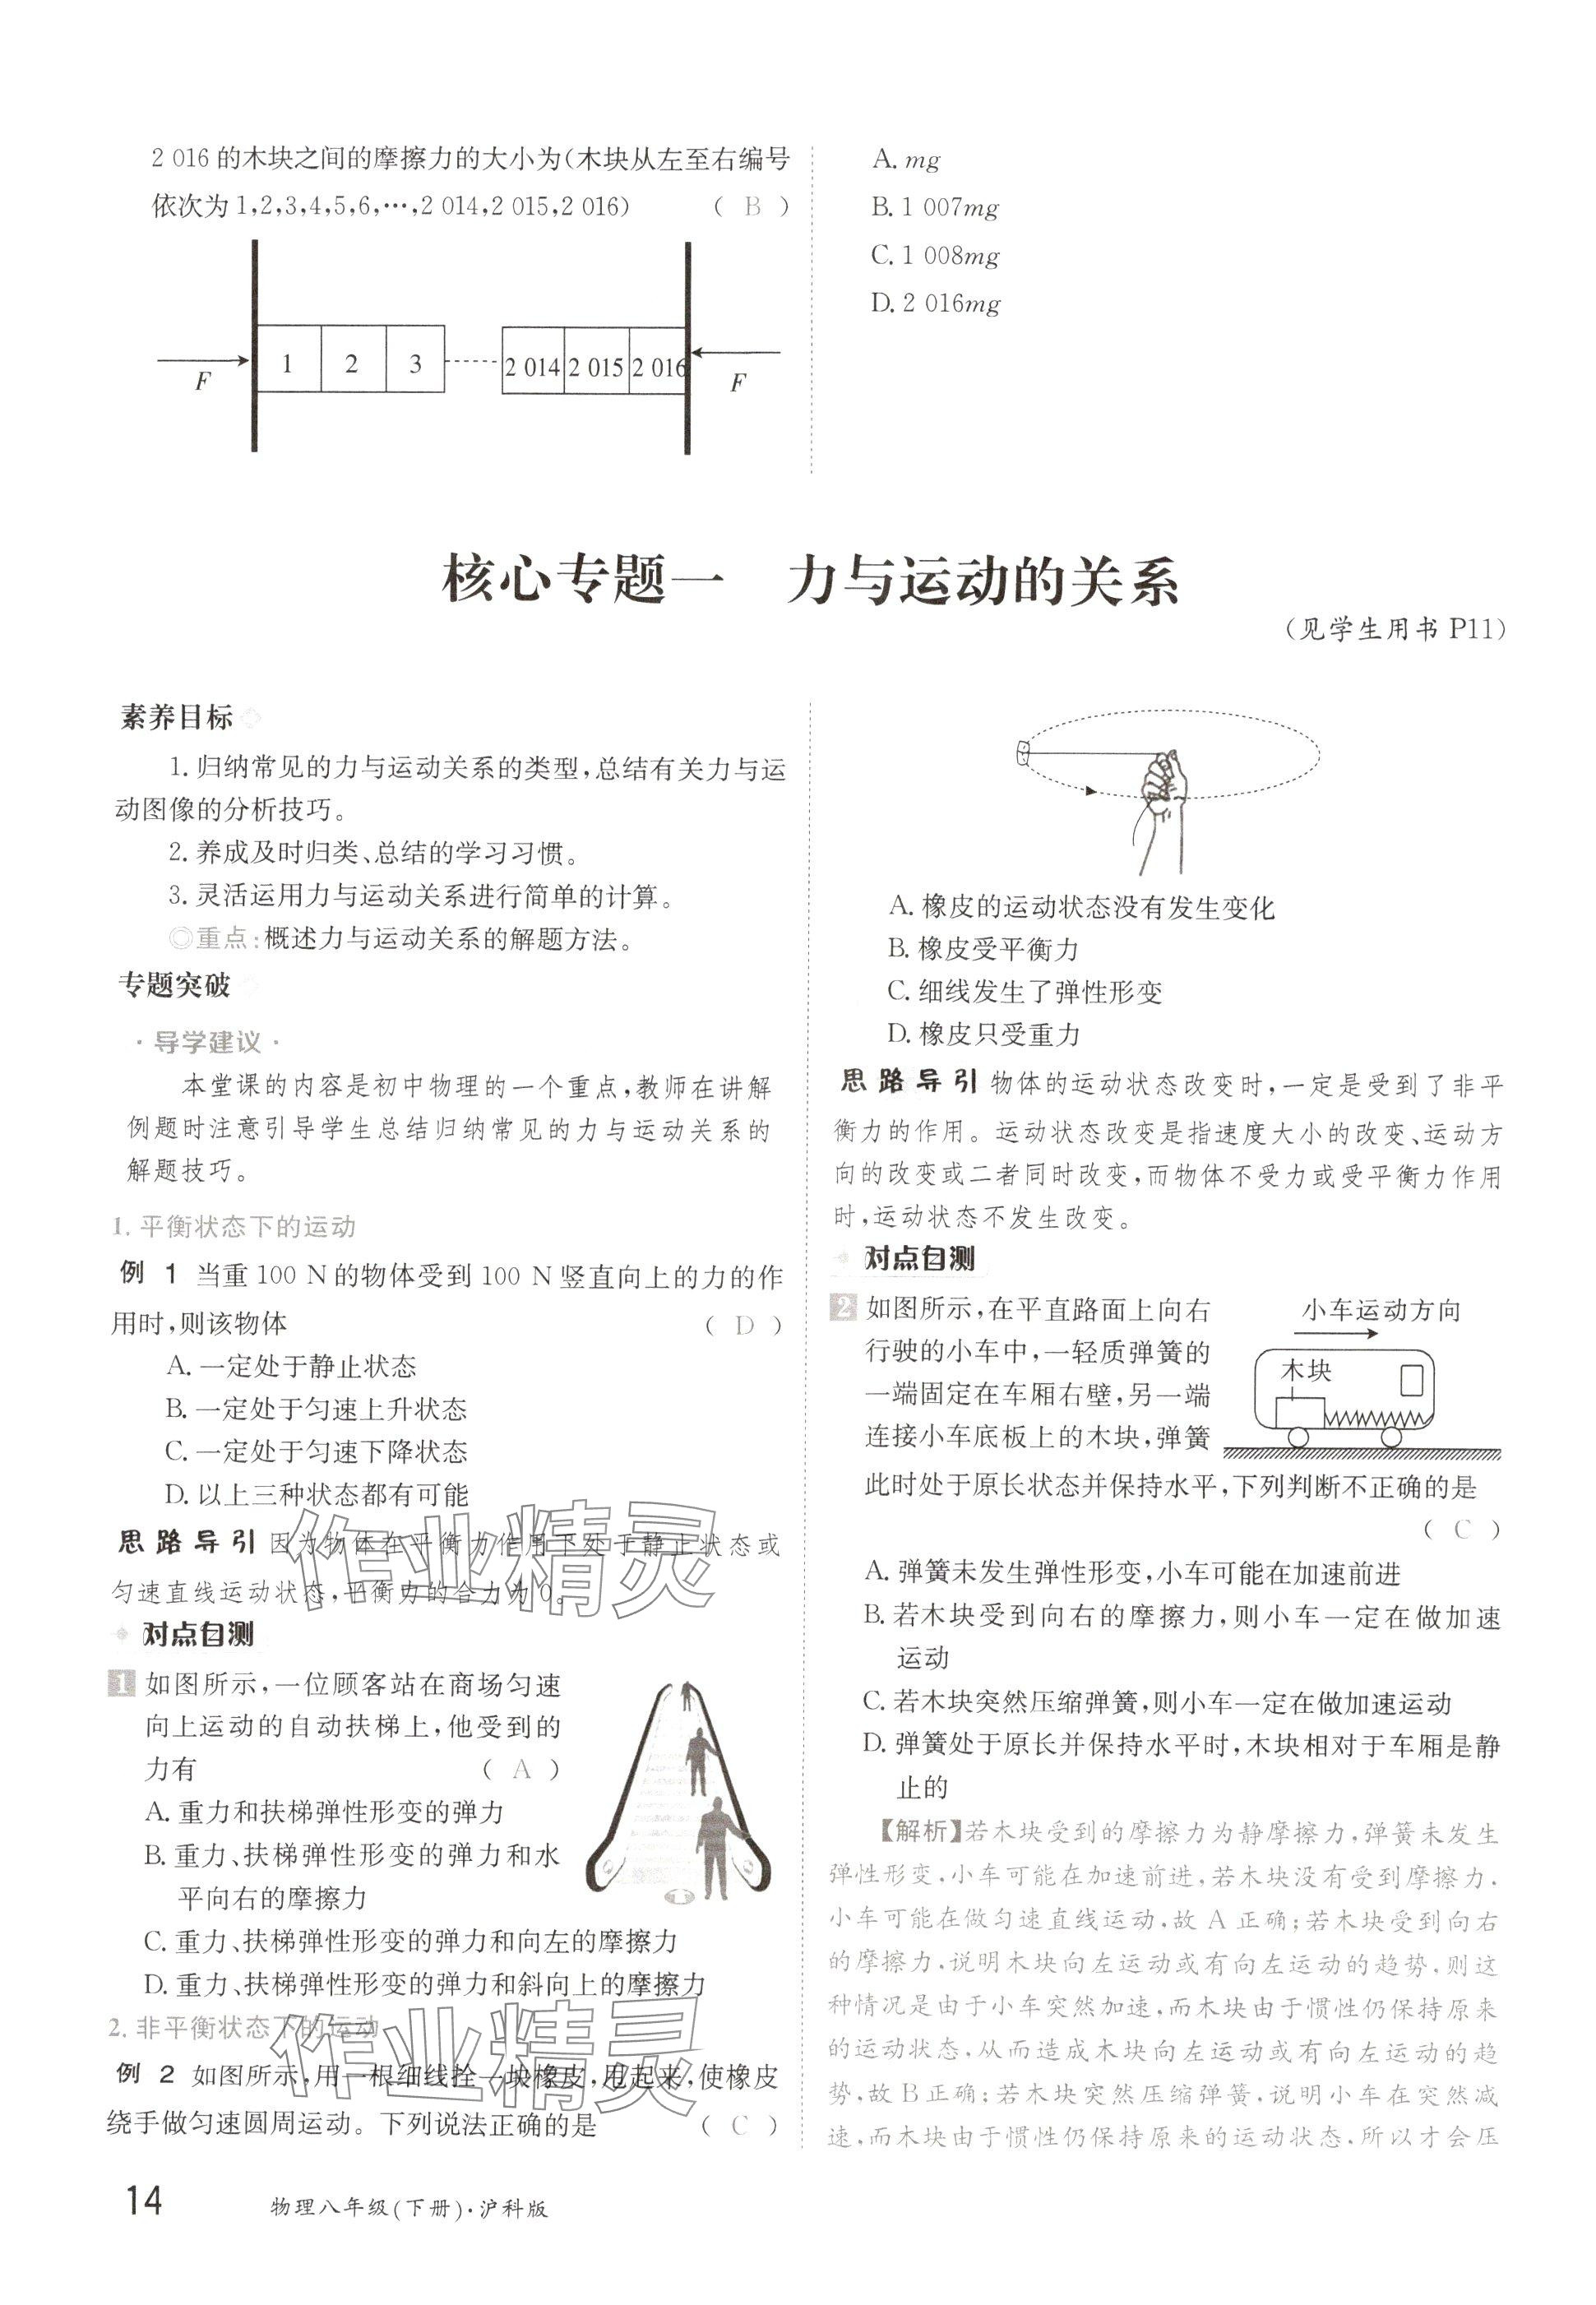 2 016 的木块之间的摩擦力的大小为(木块从左至右编号
依次为 1,2,3,4,5,6,…,2 014,2 015,2 016) ( B )
F
1 2 3 2 014 2 015 2 016
F
A. mg
B. 1 007mg
C. 1 008mg
D. 2 016mg
核心专题一 力与运动的关系
(见学生用书 P11)
素养目标
1. 归纳常见的力与运动关系的类型,总结有关力与运
动图像的分析技巧。
2. 养成及时归类、总结的学习习惯。
3. 灵活运用力与运动关系进行简单的计算。
◎重点:概述力与运动关系的解题方法。
专题突破
·导学建议·
本堂课的内容是初中物理的一个重点,教师在讲解
例题时注意引导学生总结归纳常见的力与运动关系的
解题技巧。
1. 平衡状态下的运动
例 1 当重 100 N 的物体受到 100 N 竖直向上的力的作
用时,则该物体 ( D )
A. 一定处于静止状态
B. 一定处于匀速上升状态
C. 一定处于匀速下降状态
D. 以上三种状态都有可能
思路导引 因为物体在平衡力作用下处于静止状态或
匀速直线运动状态,平衡力的合力为 0。
作业精灵
对点自测
1 如图所示,一位顾客站在商场匀速
向上运动的自动扶梯上,他受到的
力有 ( A )
A. 重力和扶梯弹性形变的弹力
B. 重力、扶梯弹性形变的弹力和水
平向右的摩擦力
C. 重力、扶梯弹性形变的弹力和向左的摩擦力
D. 重力、扶梯弹性形变的弹力和斜向上的摩擦力
2. 非平衡状态下的运动
作业精灵
例 2 如图所示,用一根细线拴一块橡皮,甩起来,使橡皮
绕手做匀速圆周运动。下列说法正确的是 ( C )
A. 橡皮的运动状态没有发生变化
B. 橡皮受平衡力
C. 细线发生了弹性形变
D. 橡皮只受重力
思路导引 物体的运动状态改变时,一定是受到了非平
衡力的作用。运动状态改变是指速度大小的改变、运动方
向的改变或二者同时改变,而物体不受力或受平衡力作用
时,运动状态不发生改变。
对点自测
2 如图所示,在平直路面上向右
行驶的小车中,一轻质弹簧的
一端固定在车厢右壁,另一端
连接小车底板上的木块,弹簧
此时处于原长状态并保持水平,下列判断不正确的是
( C )
小车运动方向
木块
A. 弹簧未发生弹性形变,小车可能在加速前进
B. 若木块受到向右的摩擦力,则小车一定在做加速
运动
C. 若木块突然压缩弹簧,则小车一定在做加速运动
D. 弹簧处于原长并保持水平时,木块相对于车厢是静
止的
【解析】若木块受到的摩擦力为静摩擦力,弹簧未发生
弹性形变,小车可能在加速前进,若木块没有受到摩擦力,
小车可能在做匀速直线运动,故 A 正确;若木块受到向右
的摩擦力,说明木块向左运动或有向左运动的趋势,则这
种情况是由于小车突然加速,而木块由于惯性仍保持原来
的运动状态,从而造成木块向左运动或有向左运动的趋
势,故 B 正确;若木块突然压缩弹簧,说明小车在突然减
速,而木块由于惯性仍保持原来的运动状态,所以才会压
14 物理八年级(下册)·沪科版